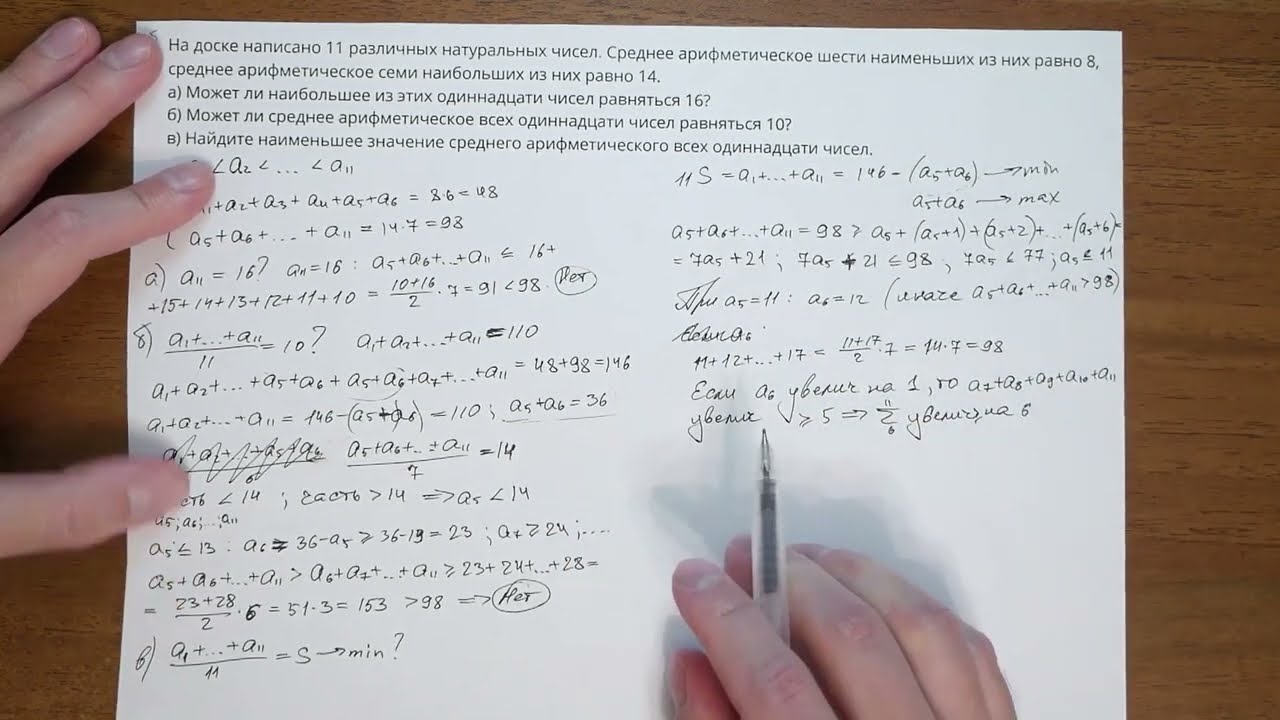 На доске написано 11 различных натуральных чисел. Среднее арифметическое шести наименьших из них равно 8,
среднее арифметическое семи наибольших из них равно 14.
а) Может ли наибольшее из этих одиннадцати чисел равняться 16?
б) Может ли среднее арифметическое всех одиннадцати чисел равняться 10?
в) Найдите наименьшее значение среднего арифметического всех одиннадцати чисел.
< a₂ < ... < a₁₁
+a₂+a₃+a₄+a₅+a₆ = 8·6 = 48
a₅+a₆+...+a₁₁ = 14·7 = 98
а) a₁₁ = 16? a₁₁=16 : a₅+a₆+...+a₁₁ ≤ 16+
+15+14+13+12+11+10 = (10+16)/2 · 7 = 91 < 98. Нет
б) (a₁+...+a₁₁)/11 = 10? a₁+a₂+...+a₁₁ = 110
a₁+a₂+...+a₅+a₆+a₅+a₆+a₇+...+a₁₁ = 48+98=146
a₁+a₂+...+a₁₁ = 146-(a₅+a₆) = 110 ; a₅+a₆ = 36
(a₅+a₆+...+a₁₁)/7 = 14
< 14 ; часть > 14 ⇒ a₅ < 14
a₅; a₆; ...; a₁₁
a₅ ≤ 13 : a₆ = 36-a₅ ≥ 36-13 = 23 ; a₇ ≥ 24 ; ....
a₅+a₆+...+a₁₁ > a₆+a₇+...+a₁₁ ≥ 23+24+...+28 =
= (23+28)/2 · 6 = 51·3 = 153 > 98 ⇒ Нет
в) (a₁+...+a₁₁)/11 = S → min?
11S = a₁+...+a₁₁ = 146-(a₅+a₆) → min
a₅+a₆ → max
a₅+a₆+...+a₁₁ = 98 ≥ a₅+(a₅+1)+(a₅+2)+...+(a₅+6)=
= 7a₅+21 ; 7a₅+21 ≤ 98 , 7a₅ ≤ 77 ; a₅ ≤ 11
При a₅=11 : a₆=12 (иначе a₅+a₆+...+a₁₁ > 98)
11+12+...+17 = (11+17)/2 · 7 = 14·7 = 98
Если a₆ увелич на 1, то a₇+a₈+a₉+a₁₀+a₁₁
увелич ≥ 5 ⇒ Σ₆¹¹ увелич на 6